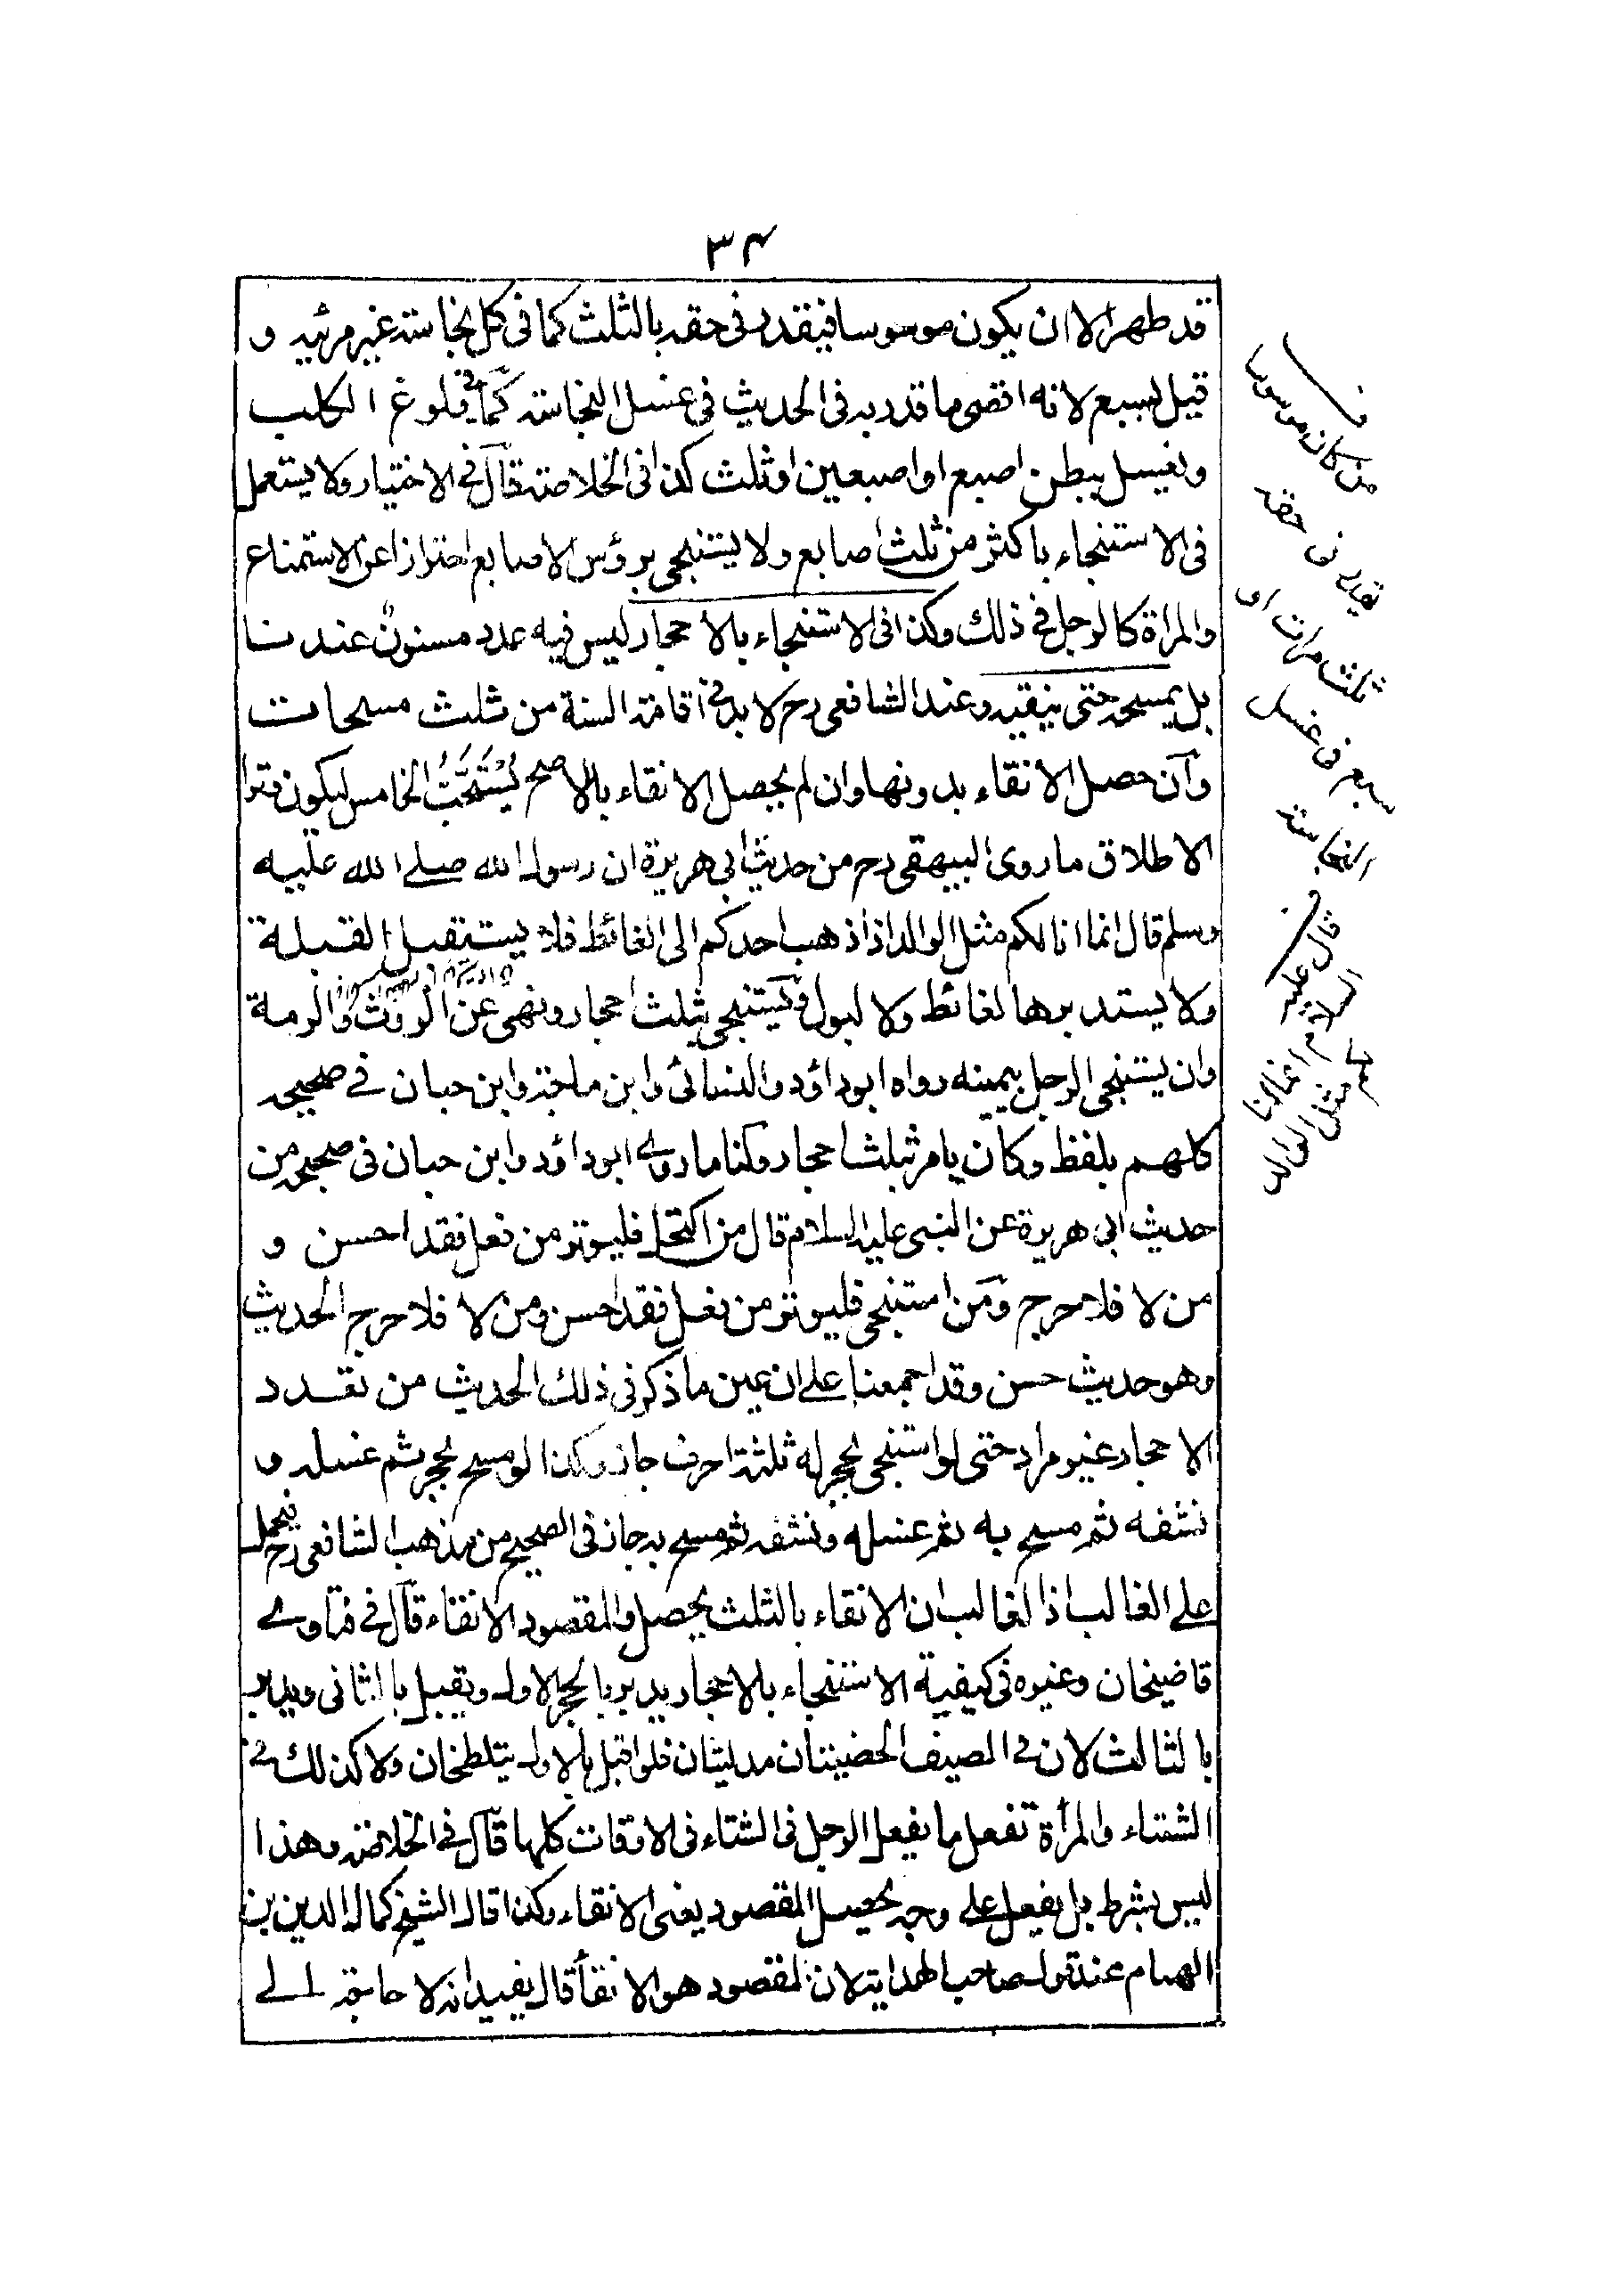 ٣٤
قد طهر الا ان يكون موسوسا فيقدر فى حقه بالثلث كما فى كل نجاسة غير مرئية و
قيل بسبع لانه اقصى ما قدر به فى الحديث فى غسل النجاسة كما فى ولوغ الكلب
ويغسل ببطن اصبع او اصبعين او ثلث كذا فى الخلاصة قال فى الاختيار ولا يستعمل
فى الاستنجاء باكثر من ثلث اصابع ولا يستنجى برؤس الاصابع احترازا عن الاستمتاع
والمراة كالرجل فى ذلك وكذا فى الاستنجاء بالاحجار ليس فيه عدد مسنون عندنا
بل يمسحه حتى ينقيه وعند الشافعى رح لا بد فى اقامة السنة من ثلث مسحات
وان حصل الانقاء بدونها وان لم يحصل الانقاء بالاصح يستحب الخامس ليكون وترا
الاطلاق ما روى البيهقى رح من حديث ابى هريرة ان رسول الله صلى الله عليه
وسلم قال انما انا لكم مثل الوالد اذا ذهب احدكم الى الغائط فلا يستقبل القبلة
ولا يستدبرها لغائط ولا لبول ويستنجى بثلث احجار ونهى عن الروث والرمة
وان يستنجى الرجل بيمينه رواه ابو داؤد والنسائى وابن ماجة وابن حبان فى صحيحه
كلهم بلفظ وكان يامر بثلث احجار ولنا ما روى ابو داؤد وابن حبان فى صحيحه من
حديث ابى هريرة عن النبى عليه السلام قال من اكتحل فليوتر من فعل فقد احسن و
من لا فلا حرج ومن استنجى فليوتر من فعل فقد احسن ومن لا فلا حرج الحديث
وهو حديث حسن وقد اجمعنا على ان عين ما ذكر فى ذلك الحديث من تعدد
الاحجار غير مراد حتى لو استنجى بحجر له ثلثة احرف جاز وكذا لو مسح بحجر ثم غسله و
نشفه ثم مسح به ثم غسله ونشفه ثم مسح به جاز فى الصحيح من مذهب الشافعى رح فيحمل
على الغالب اذ الغالب ان الانقاء بالثلث يحصل والمقصود الانقاء قال فى فتاوى
قاضيخان وغيره فى كيفية الاستنجاء بالاحجار يدبر بالحجر الاول ويقبل بالثانى ويدبر
بالثالث لان فى الصيف الخصيتان مدليتان فلو اقبل بالاول يتلطخان ولا كذلك فى
الشتاء والمرأة تفعل ما يفعل الرجل فى الشتاء فى الاوقات كلها قال فى الخلاصة وهذا
ليس بشرط بل يفعل على وجه يحصل المقصود يعنى الانقاء وكذا قال الشيخ كمال الدين بن
الهمام عند قول صاحب الهداية لان المقصود هو الانقأ قال يفيد انه لا حاجة الى
من كان موسوسا
يقدر فى حقه
ثلث مرات او
سبع فى غسل
النجاسة
قال عليه
السلام انما انا
لكم مثل الوالد